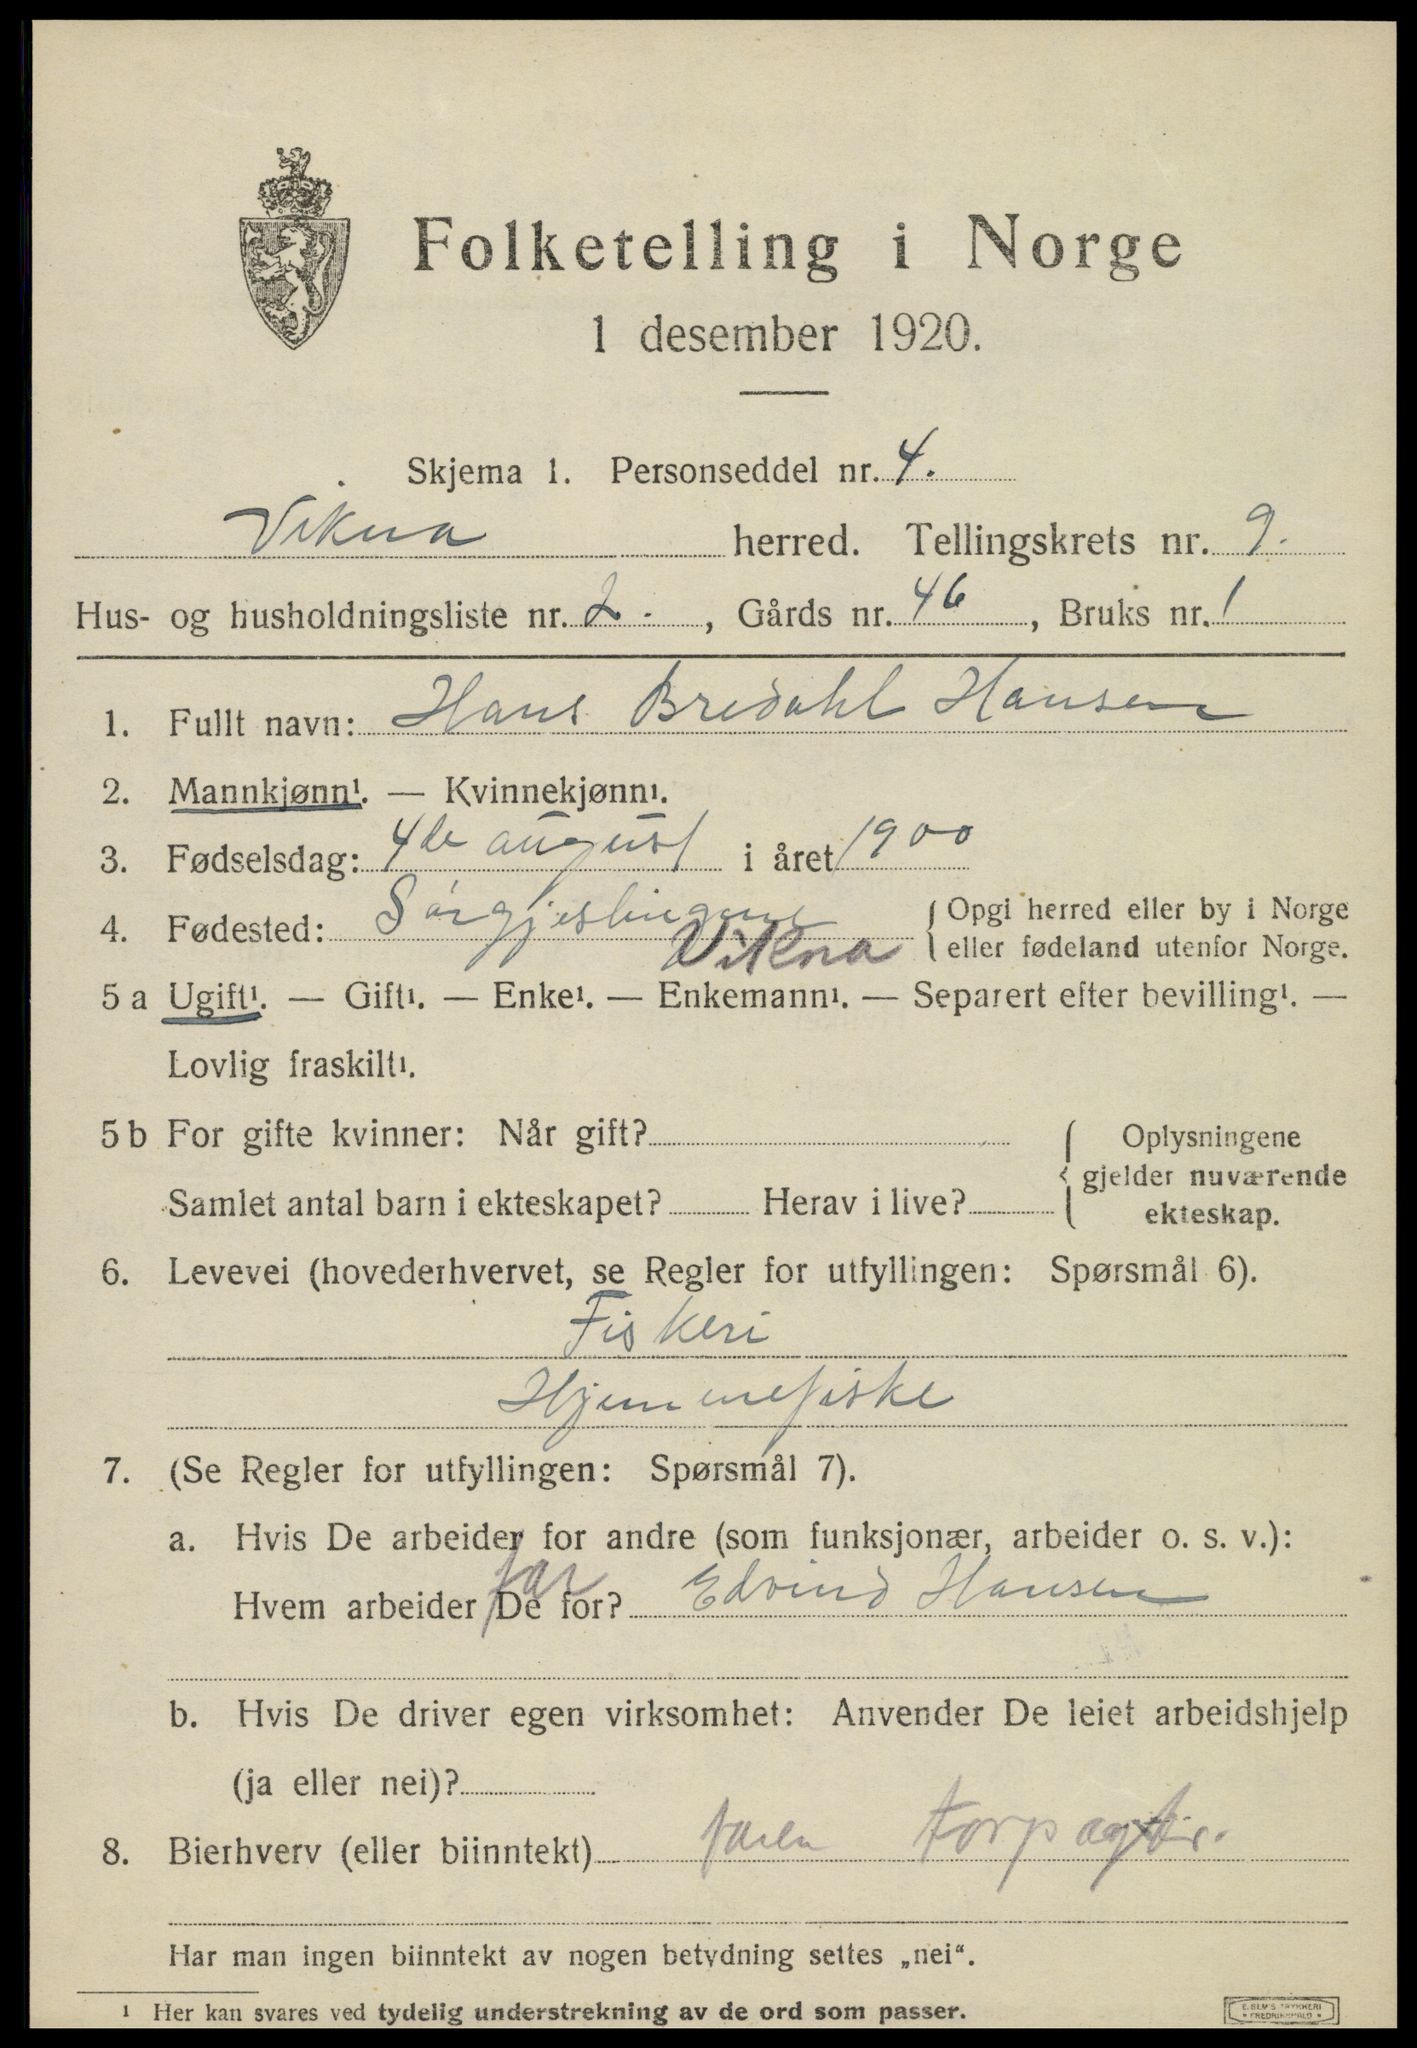 Folketelling i Norge
1 desember 1920.
Skjema 1. Personseddel nr. 4.
Vikna herred. Tellingskrets nr. 9.
Hus- og husholdningsliste nr. 2. , Gårds nr. 46 , Bruks nr. 1
1. Fullt navn: Hans Bredahl Hansen
2. Mannkjønn¹. — Kvinnekjønn¹.
3. Fødselsdag: 4de august i året 1900
4. Fødested: Sørgjeslingene { Opgi herred eller by i Norge
Vikna eller fødeland utenfor Norge.
5 a Ugift¹. — Gift¹. — Enke¹. — Enkemann¹. — Separert efter bevilling¹. —
Lovlig fraskilt¹.
5 b For gifte kvinner: Når gift? { Oplysningene
gjelder nuværende
Samlet antal barn i ekteskapet? Herav i live? ekteskap.
6. Levevei (hovederhvervet, se Regler for utfyllingen: Spørsmål 6).
Fiskeri
Hjemmefiske
7. (Se Regler for utfyllingen: Spørsmål 7).
a. Hvis De arbeider for andre (som funksjonær, arbeider o. s. v.):
far
Hvem arbeider De for? Edvind Hansen
b. Hvis De driver egen virksomhet: Anvender De leiet arbeidshjelp
(ja eller nei)?
8. Bierhverv (eller biinntekt) faren forpagter.
Har man ingen biinntekt av nogen betydning settes „nei“.
¹ Her kan svares ved tydelig understrekning av de ord som passer.
E. SEM'S TRYKKERI
* FREDRIKSHALD *